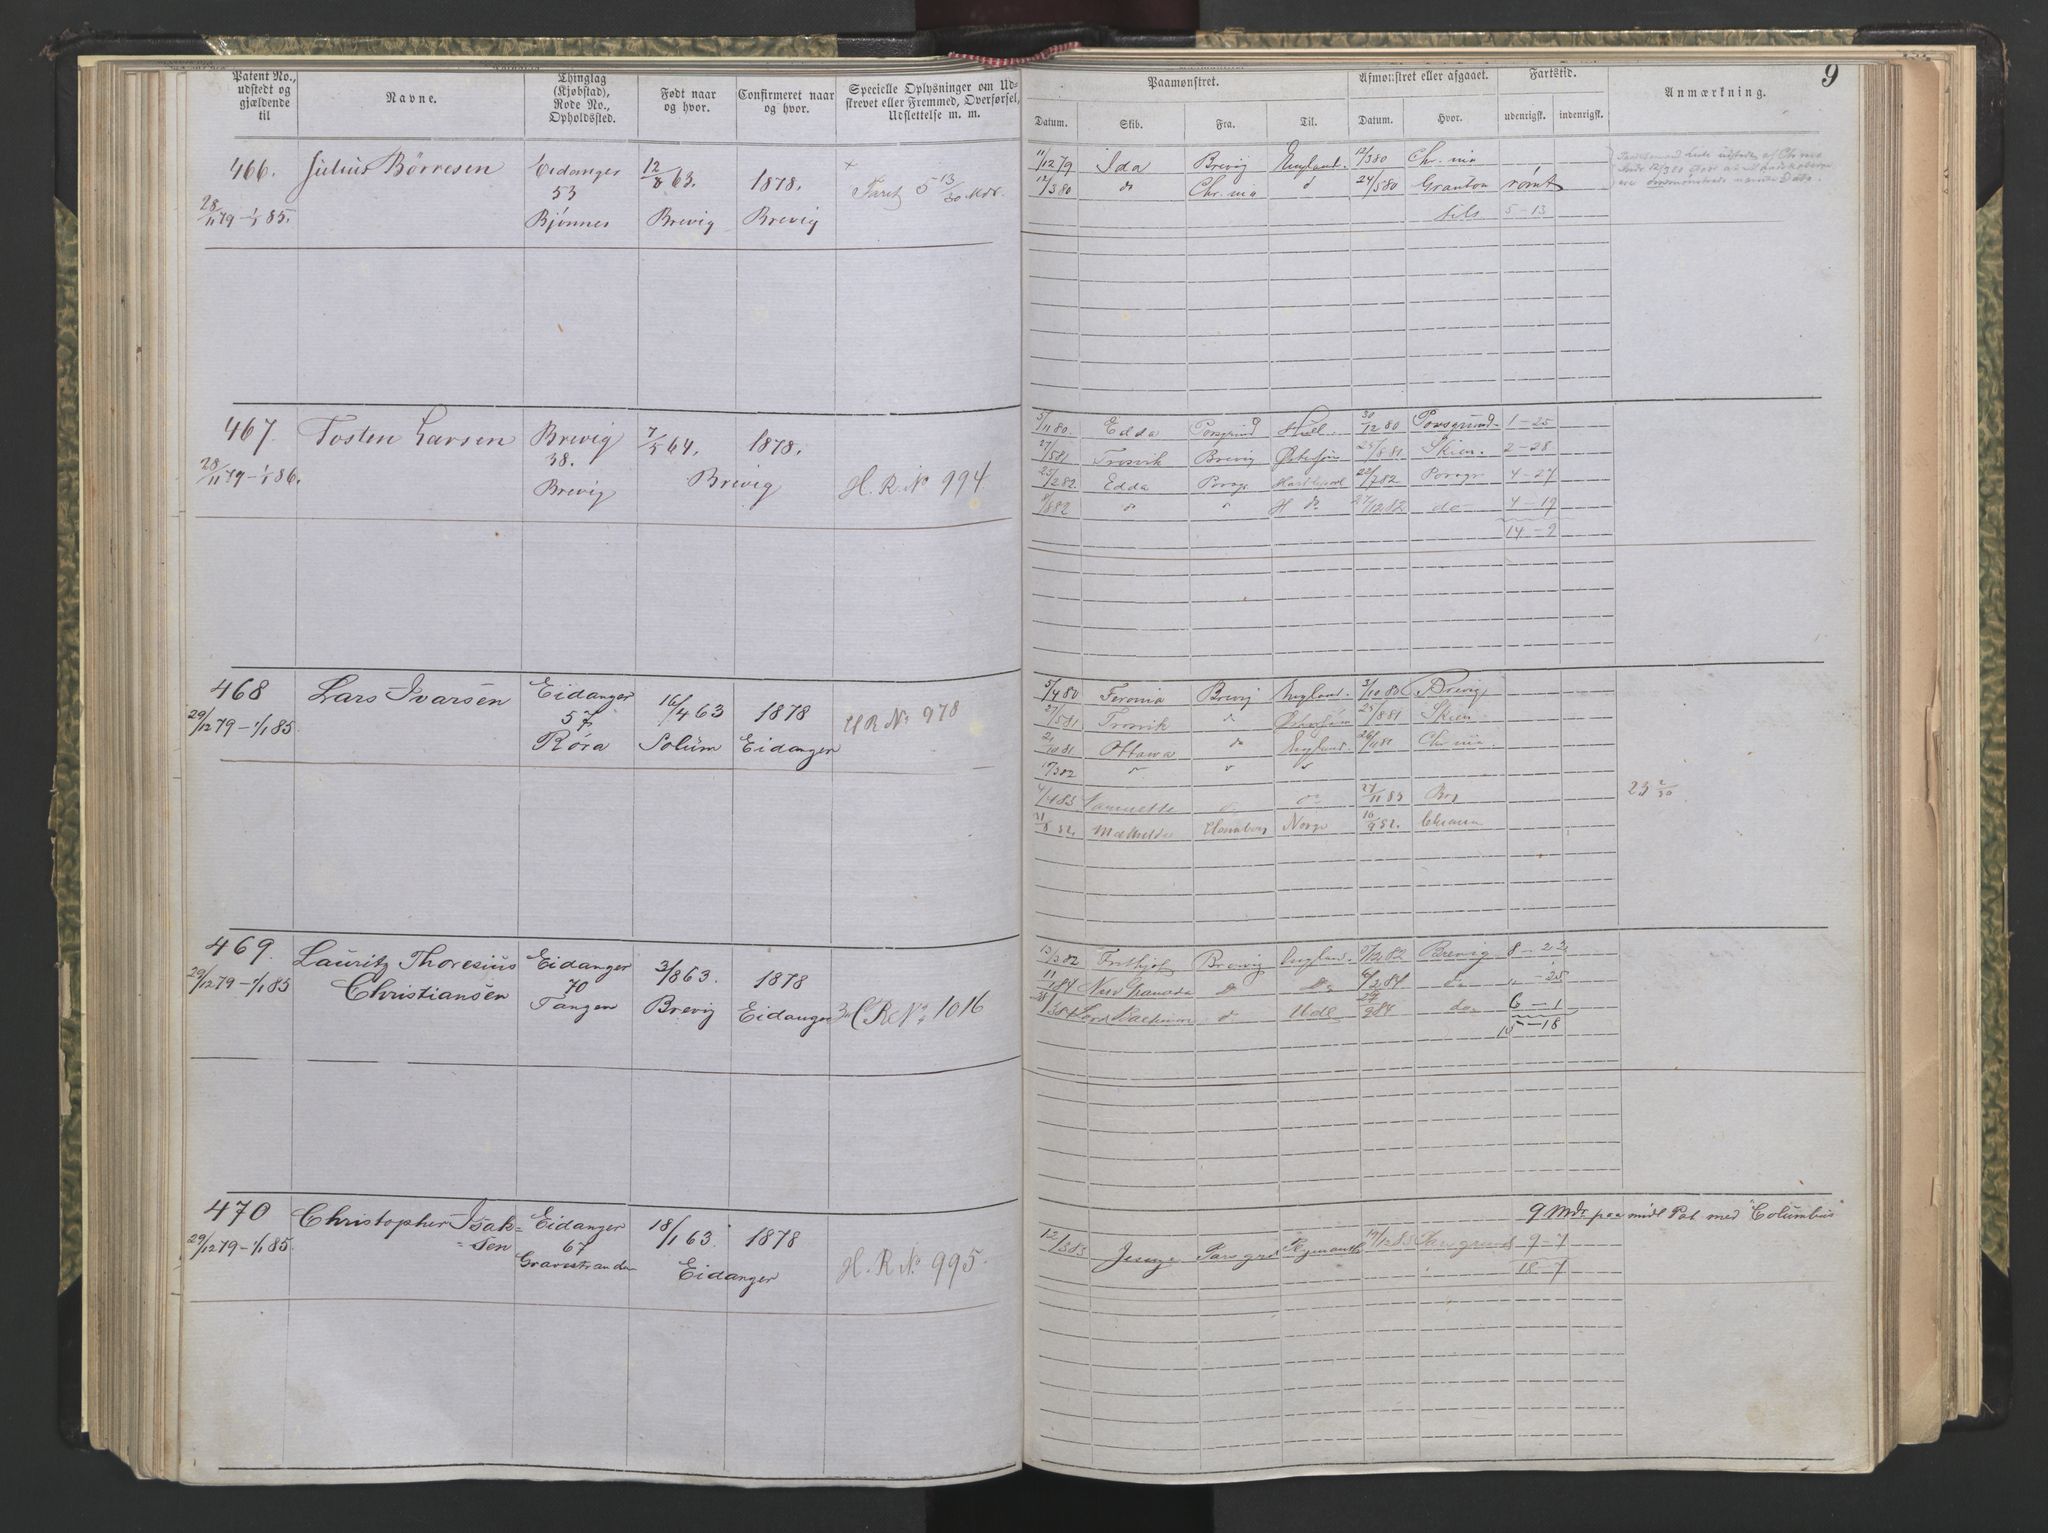 Patent No., udstedt og gjældende til
Navne.
Thinglag (Kjøbstad), Rode No., Opholdssted.
Født naar og hvor.
Confirmeret naar og hvor.
Specielle Oplysninger om Udskrevet eller Fremmed, Overførsel, Udslettelse m. m.
Paamønstret.
Afmønstret eller afgaaet.
Fartstid.
Anmærkning.
9
Datum. Skib. Fra. Til. Datum. Hvor. udenrigsk. indenrigsk.
466. Julius Börresen Eidanger 12/8 63. 1878.
53
28/11 79 – 1/1 85. Bjönnes Brevig Brevig
Faret 5 13/30 Mdr.
11/12 79 Ida Brevig England. 12/3 80 Chr. nia
12/3 80 do Chr. nia d 24/5 80 Granton rømt
5 – 13
467. Tosten Larsen Brevig 7/5 64. 1878.
38.
28/11 79 – 1/1 86. Brevig Brevig H. R. No 994
5/11 80 Edda Porsgrund Hull. 30/12 80 Porsgrund 1 – 25
27/5 81 Trosvik Brevig Østersjøn 25/8 81 Skien. 2 – 28
25/2 82 Edda Porsgr 22/7 82 Porsgr 4 – 27
8/8 82 H do 27/12 82 do 4 – 19
14 – 9
468 Lars Ivarsen Eidanger 16/4 63 1878
57
29/12 79 – 1/1 85 Röra Solum Eidanger H R No 978
5/4 80 Feronia Brevig England. 3/10 80 Brevig
27/5 81 Trosvik do Østersjøn 25/8 81 Skien.
10 81 Ottawa do England. 26/11 81 Chr nia
17/3 82
4/4 83 27/11 83
23 2/30
31/8 82. Mathilde Hamburg Norge 16/9 82.
469. Lauritz Thoresius Christiansen Eidanger 3/8 63. 1878
70
29/12 79 – 1/1 85 Tangen Brevig Eidanger H R No 1016
13/3 82 Fritjof Brevig England. 82 Brevig 8 – 22
11/1 84 New Granada do Do 6/2 84 do „ – 25
3 84 Hull 29/9 84 do 6 – 1
15 – 18
470 Christopher Isaksen Eidanger 18/1 63. 1878
67
29/12 79 – 1/1 85. Gravastranden Eidanger H. R No 995.
9 Mdr. paa midl Pat med "Columbus"
12/3 83 Porsgrd 19/12 83 Porsgrund 9 – 7
18 – 7